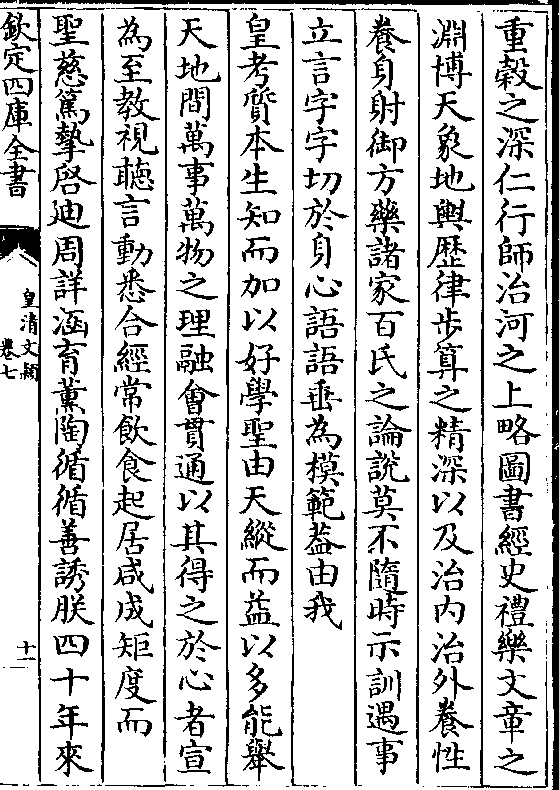 重穀之深仁行師治河之上略圖書經史禮樂文章之
淵博天象地輿歴律步算之精深以及治内治外養性
養身射御方藥諸家百氏之論說莫不隨時示訓遇事
立言字字切於身心語語垂為模範葢由我
皇考質本生知而加以好學聖由天縱而益以多能舉
天地間萬事萬物之理融會貫通以其得之於心者宣
為至教視聴言動悉合經常飲食起居咸成矩度而
聖慈篤摯啓迪周詳涵育薰陶循循善誘朕四十年來
欽定四庫全書
皇清文穎
卷七
十一